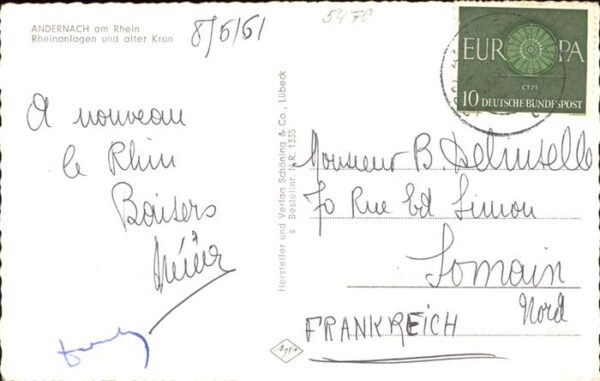 ANDERNACH am Rhein
Rheinanlagen und alter Kran
8/5/61
5470
EUROPA
CEPT
10 DEUTSCHE BUNDESPOST
A nouveau
le Rhin
Baisers
Hersteller und Verlag Schöning & Co., Lübeck
Bestellnr. N.R. 1335
Monsieur B. Delmselle
70 Rue Ed Simon
Somain
Nord
FRANKREICH
Agfa